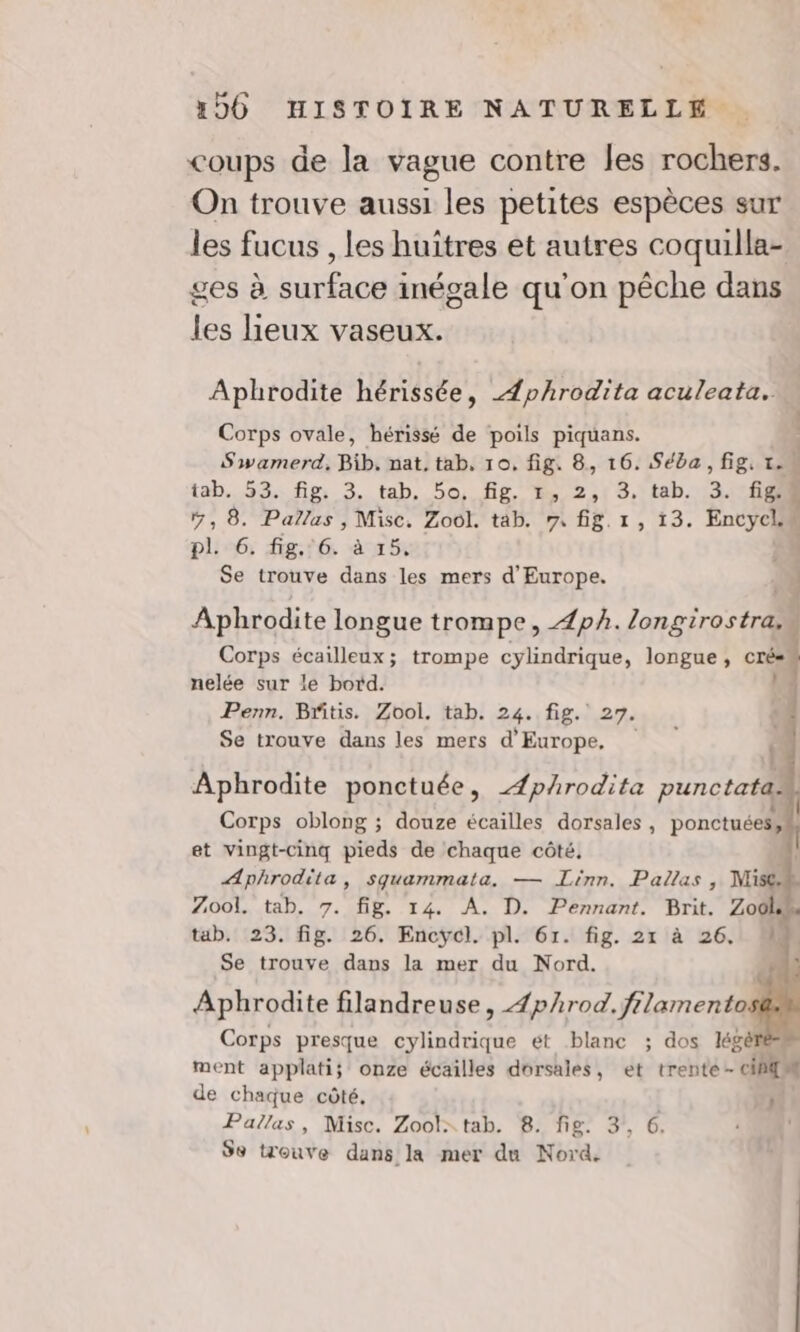 156 HISTOIRE NATURELLE
coups de la vague contre les rochers.
On trouve aussi les petites espèces sur
les fucus , les huîtres et autres coquilla-
ges à surface inégale qu'on pêche dans
les lieux vaseux.
Aphrodite hérissée, Aphrodita aculeata.
Corps ovale, hérissé de poils piquans.
Swamerd. Bib. nat. tab. 10. fig. 8, 16. Séba, fig. 1.
tab. 53. fig. 3. tab. 50. fig. 1, 2, 3. tab. 3. fig.
7, 8. Pallas, Misc. Zool. tab. 7. fig. 1, 13. Encycl.
pl. 6. fig. 6. à 15.
Se trouve dans les mers d'Europe.
Aphrodite longue trompe, Aph. longirostra.
Corps écailleux; trompe cylindrique, longue, cré-
nelée sur le bord.
Penn. Britis. Zool. tab. 24. fig. 27.
Se trouve dans les mers d'Europe.
Aphrodite ponctuée, Aphrodita punctata.
Corps oblong ; douze écailles dorsales, ponctuées,
et vingt-cinq pieds de chaque côté.
Aphrodita, squammata. — Linn. Pallas, Misc.
Zool. tab. 7. fig. 14. A. D. Pennant. Brit. Zool.
tab. 23. fig. 26. Encycl. pl. 61. fig. 21 à 26.
Se trouve dans la mer du Nord.
Aphrodite filandreuse, Aphrod. filamentosa.
Corps presque cylindrique et blanc ; dos légère-
ment applati; onze écailles dorsales, et trente-cinq
de chaque côté.
Pallas, Misc. Zool. tab. 8. fig. 3, 6.
Se trouve dans la mer du Nord.